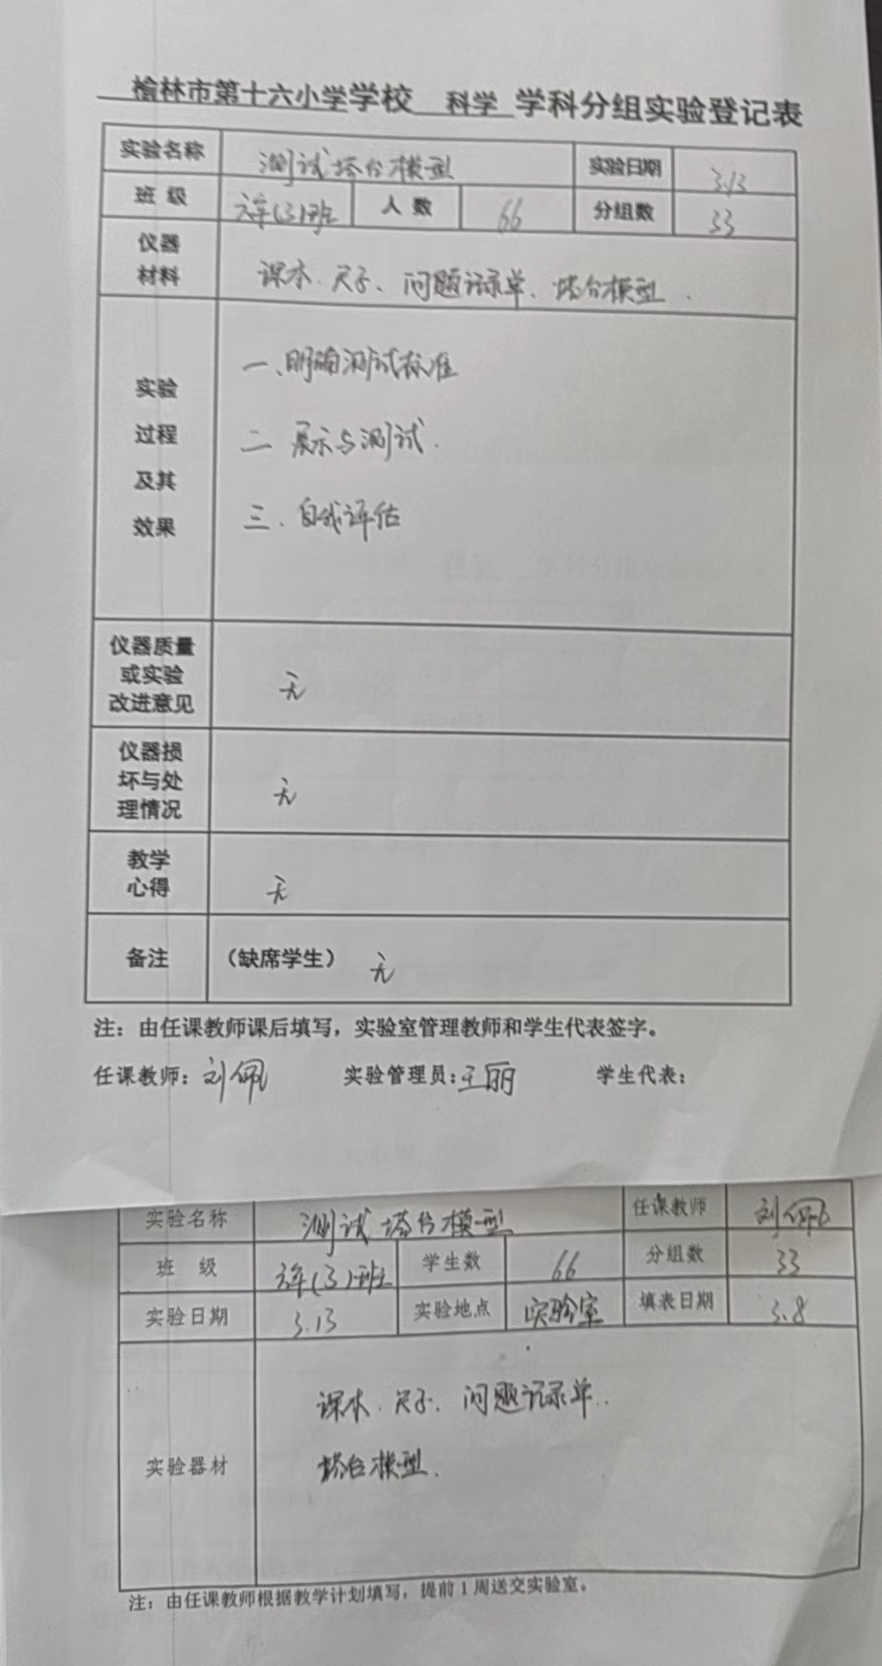 榆林市第十六小学学校 科学 学科分组实验登记表
实验名称 测试塔台模型 实验日期 3.13
班 级 六年(3)班 人 数 66 分组数 33
仪器
材料
课本、尺子、问题记录单、塔台模型.
实验
过程
及其
效果
一、明确测试标准
二 展示与测试.
三、自我评估
仪器质量
或实验
改进意见
无
仪器损
坏与处
理情况
无
教学
心得
无
备注 (缺席学生) 无
注：由任课教师课后填写，实验室管理教师和学生代表签字。
任课教师：刘佩 实验管理员：王丽 学生代表：
实验名称 测试塔台模型 任课教师 刘佩
班 级 六年(3)班 学生数 66 分组数 33
实验日期 3.13 实验地点 实验室 填表日期 3.8
实验器材
课本、尺子、问题记录单.
塔台模型.
注：由任课教师根据教学计划填写，提前1周送交实验室。